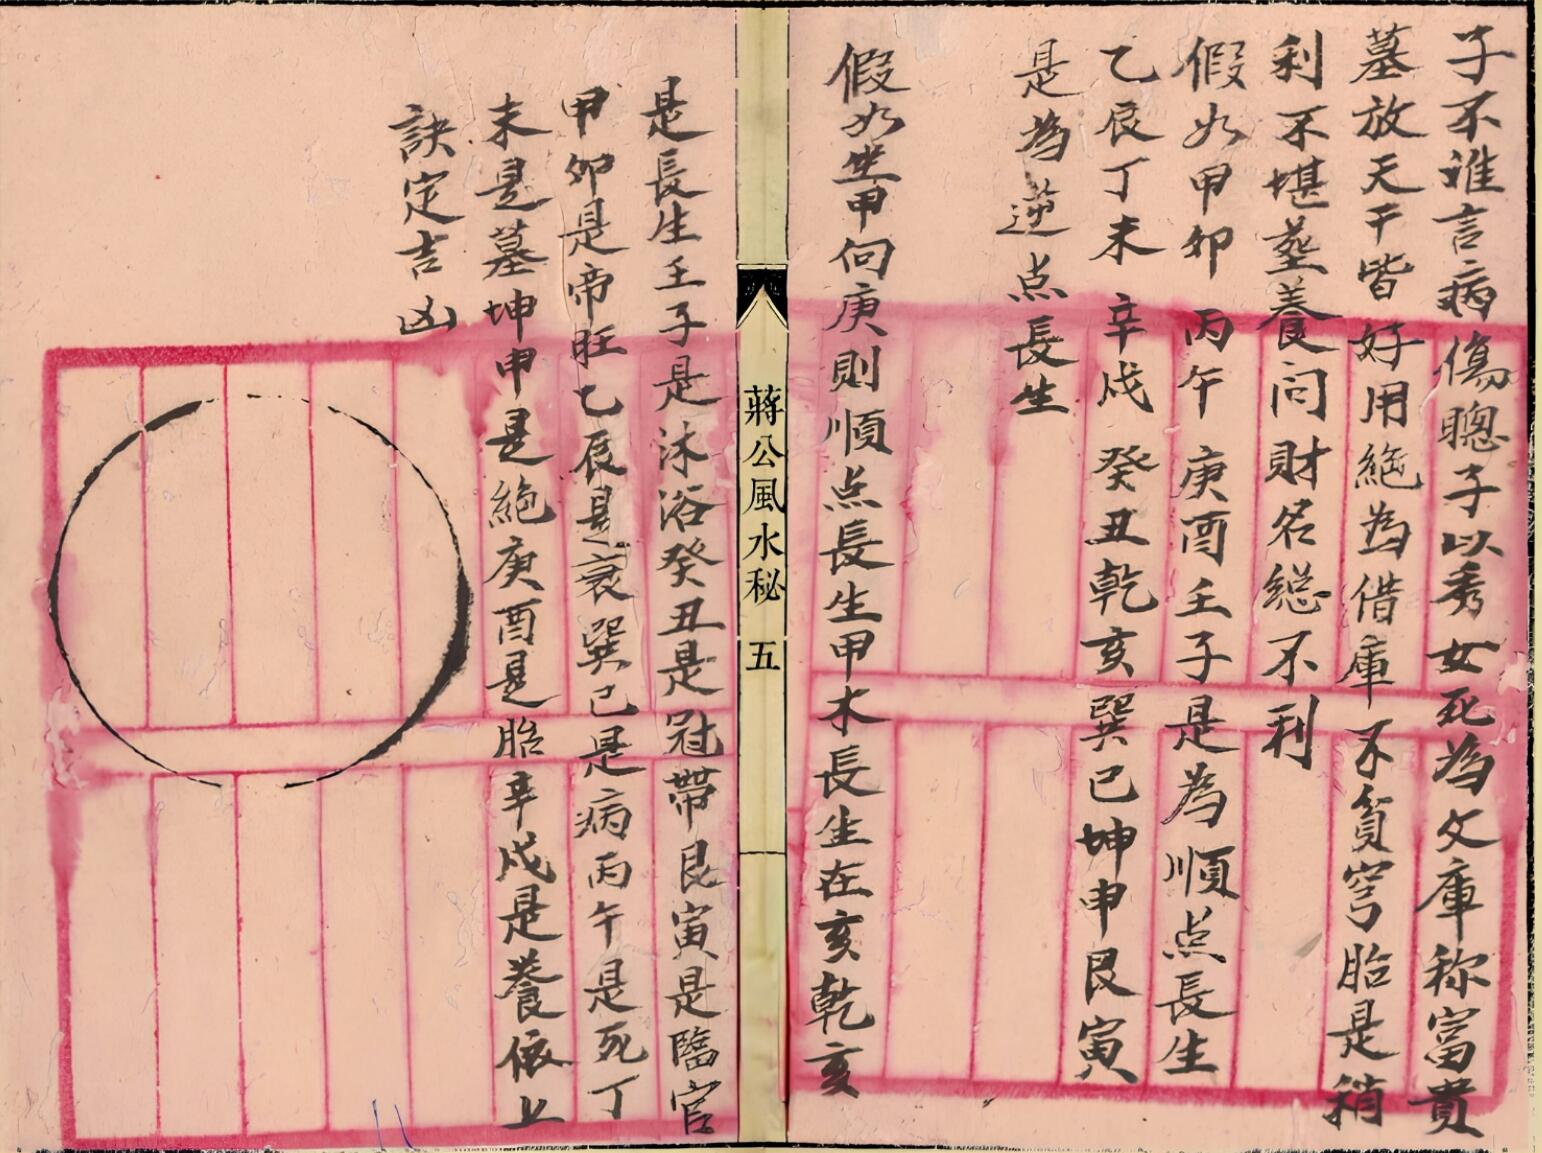 子不谁言病傷聰子以秀女死為文庫称富貴
墓放天干皆好用絶為借庫不貧穷胎是稍
利不堪塟養问財名総不利
假如甲卯丙午庚酉壬子是為順点長生
乙辰丁未辛戍癸丑乾亥巽已坤申艮寅
是為逆点長生
假如坐甲向庚則順点長生甲木長生在亥乾亥
蔣公風水秘 五
是長生壬子是沐浴癸丑是冠帶艮寅是臨官
甲卯是帝旺乙辰是衰巽已是病丙午是死丁
未是墓坤申是絶庚酉是胎辛戍是養依上
訣定吉凶